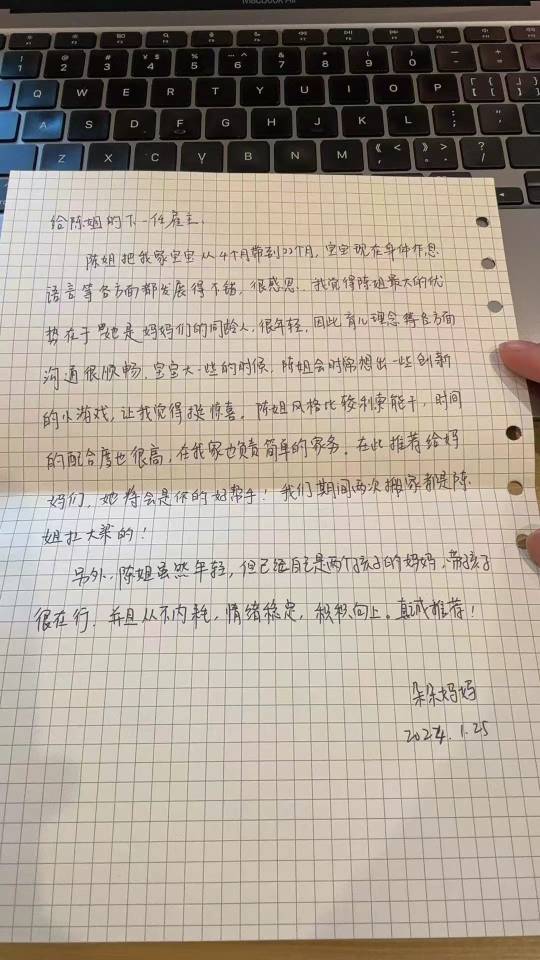 MacBook Air
! 1 @ 2 # 3 ¥ $ 4 % 5 ^ 6 & 7 * 8 ( 9 ) 0
Q W E R T Y U I O P
A S D F G H J K L
Z X C V B N M
给陈姐的下一任雇主:
陈姐把我家宝宝从4个月带到22个月,宝宝现在身体作息
语言等各方面都发展得不错,很感恩。我觉得陈姐最大的优
势在于她是妈妈们的同龄人,很年轻,因此育儿理念等各方面
沟通很顺畅。宝宝大一些的时候,陈姐会时常想出一些创新
的小游戏,让我觉得挺惊喜。陈姐风格比较利索能干,时间
的配合度也很高,在我家也负责简单的家务。在此推荐给妈
妈们,她将会是你的好帮手!我们期间两次搬家都是陈
姐扛大梁的!
另外,陈姐虽然年轻,但已经自己是两个孩子的妈妈,带孩子
很在行,并且从不内耗,情绪稳定,积极向上。真诚推荐!
朵朵妈妈
2024.1.25